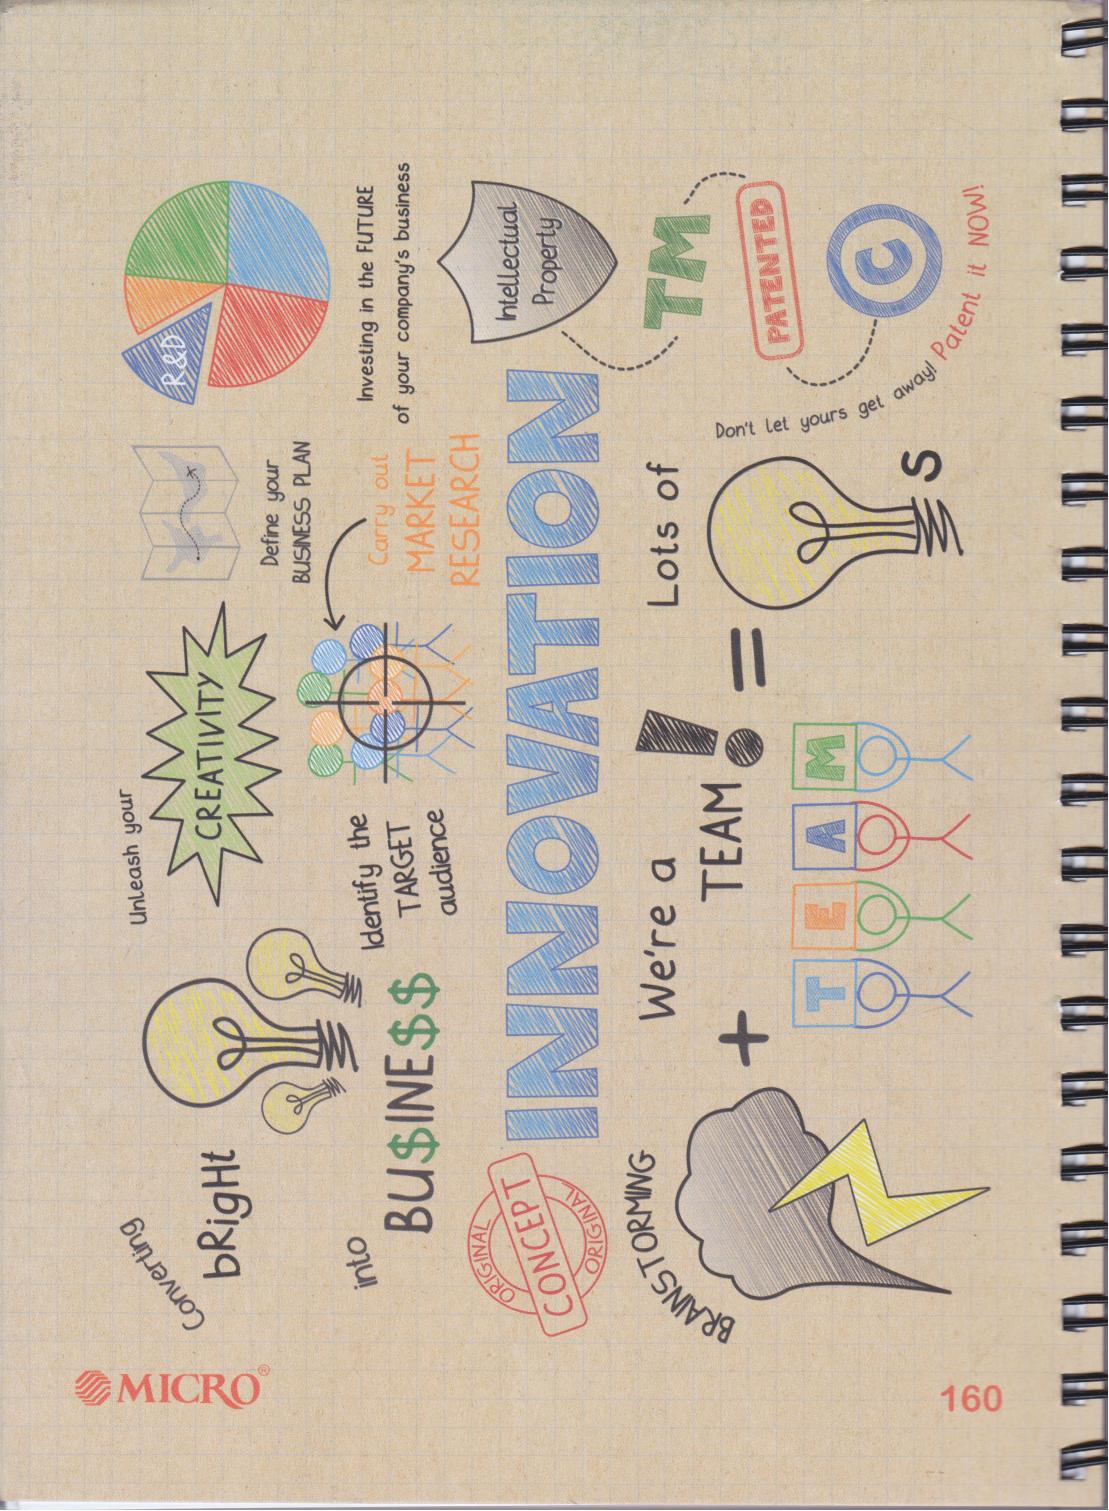 MICRO®
Converting
bRigHt
into
BU$INE$$
Unleash your
CREATIVITY
Define your
BUSINESS PLAN
R&D
Investing in the FUTURE
of your company's business
Identify the
TARGET
audience
Carry out
MARKET
RESEARCH
ORIGINAL
CONCEPT
ORIGINAL
INNOVATION
Intellectual
Property
BRAINSTORMING
+
We're a
TEAM!
T E A M
=
Lots of
S
TM
PATENTED
C
Don't let yours get away! Patent it NOW!
160